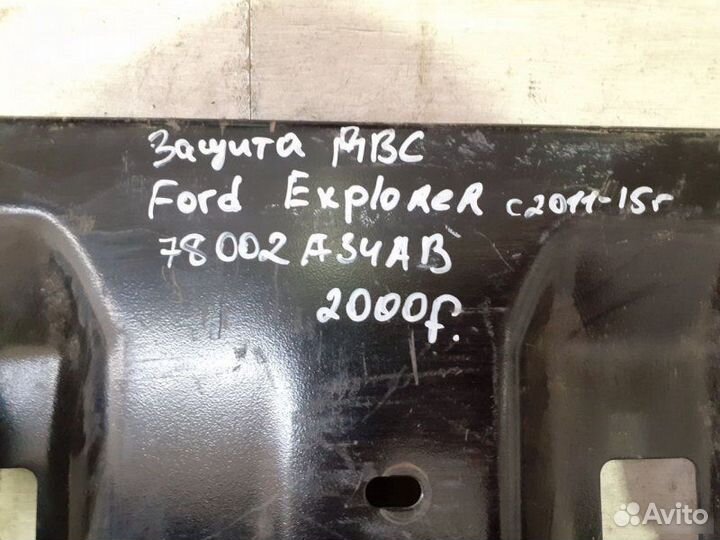 Защита ДВС
Ford Explorer с 2011-15г
78002A34AB
2000р.
Avito